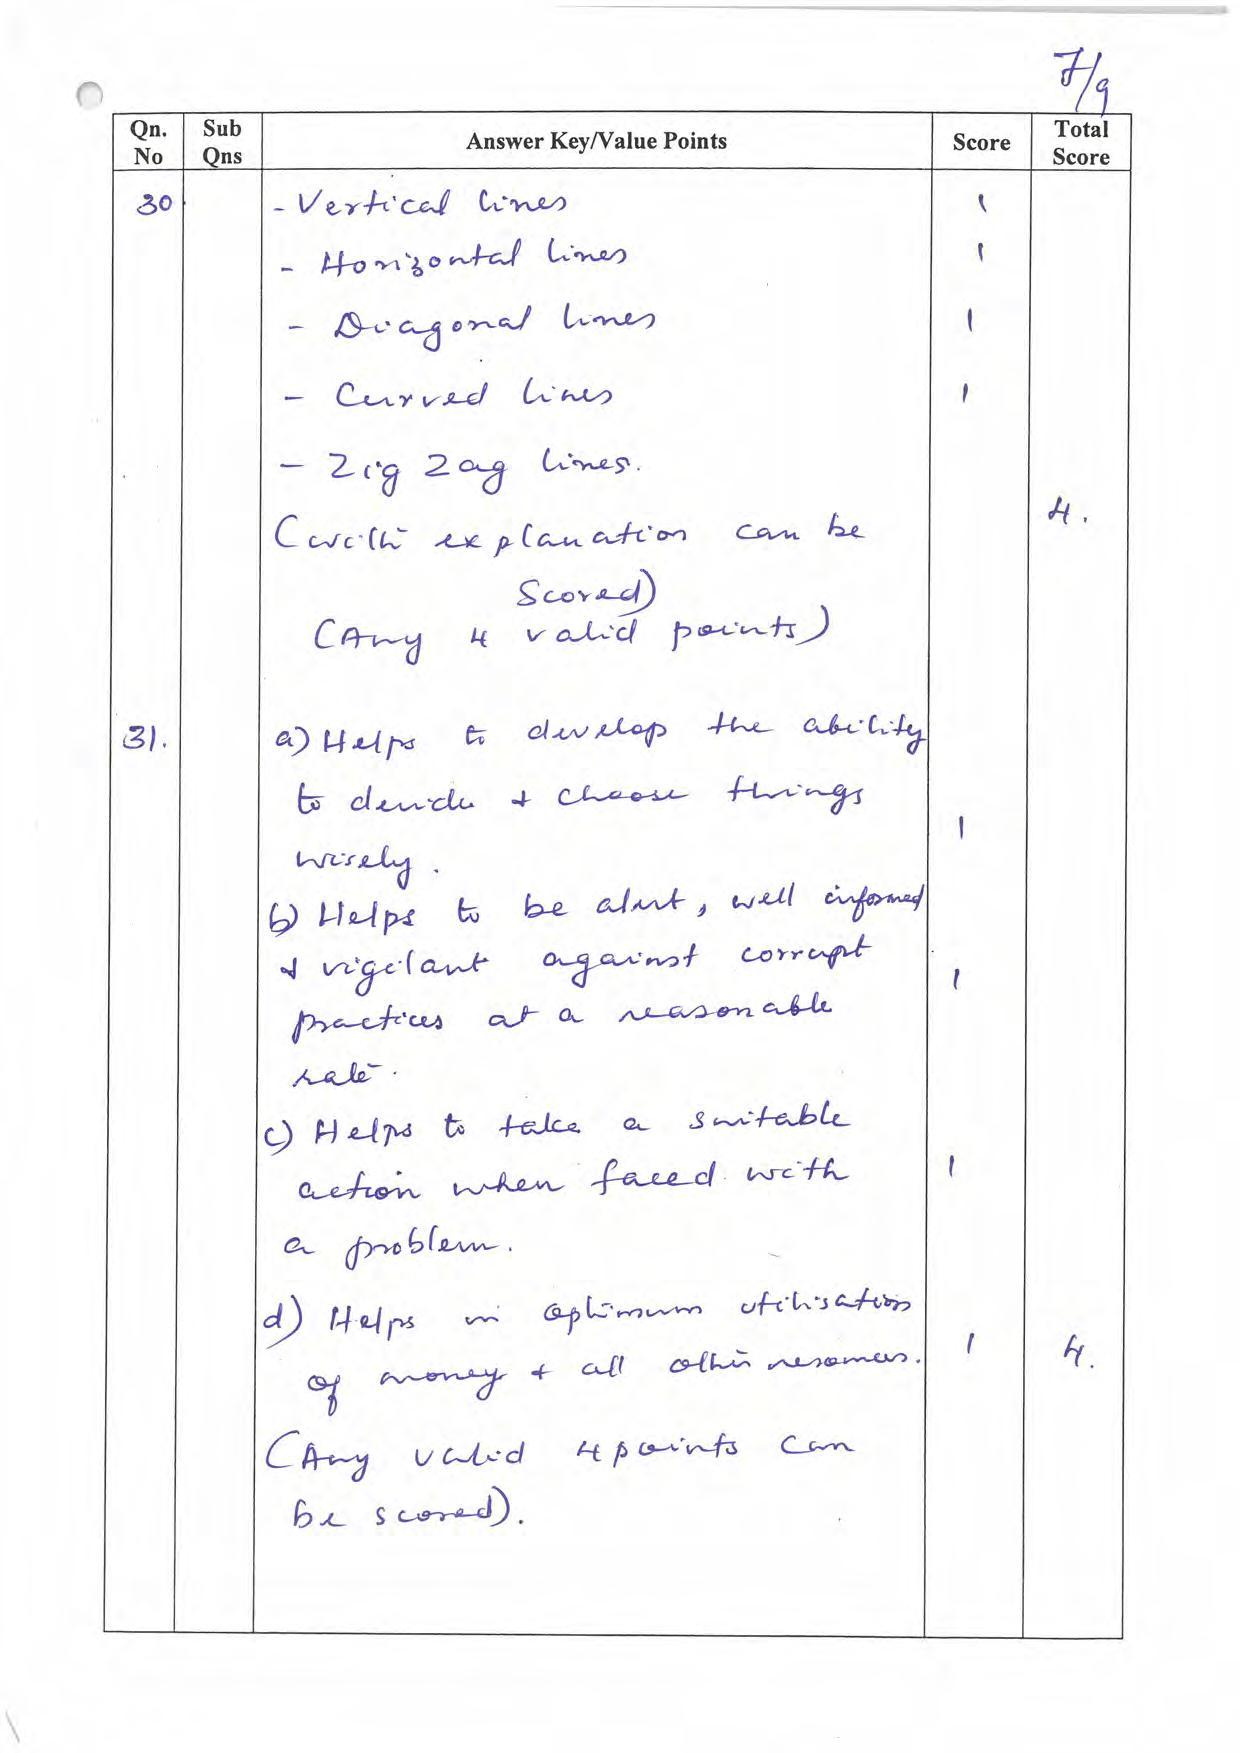 7/9
Qn. No Sub Qns Answer Key/Value Points Score Total Score
30 - Vertical lines 1
- Horizontal lines 1
- Diagonal lines 1
- Curved lines 1
- Zig Zag lines.
(with explanation can be 4.
Scored)
(Any 4 valid points)
31. a) Helps to develop the ability
to decide & choose things 1
wisely.
b) Helps to be alert, well informed
& vigilant against corrupt 1
practices at a reasonable
rate.
c) Helps to take a suitable
action when faced with 1
a problem.
d) Helps in optimum utilisation
of money & all other resources. 1 4.
(Any valid 4 points can
be scored).